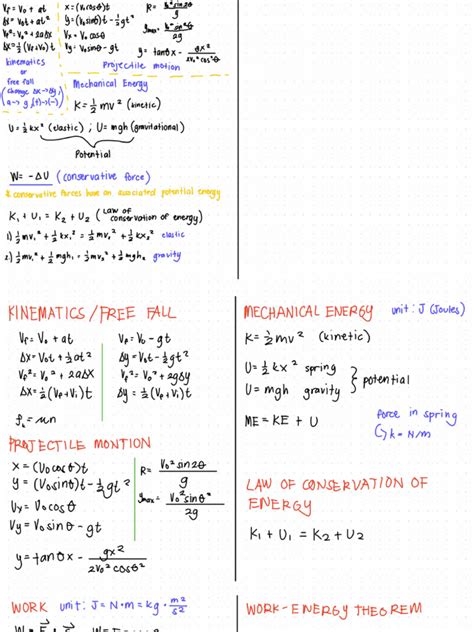 Vf = V₀ + at
x = (V₀cosθ)t
R = V₀²sin2θ / g
Δx = V₀t + at²
y = (V₀sinθ)t - ½gt²
Vf² = V₀² + 2aΔx
Vx = V₀cosθ
ymax = V₀²sinθ² / 2g
Δx = ½(Vf+V₀)t
Vy = V₀sinθ - gt
y = tanθx - gx² / 2V₀²cos²θ
kinematics
or
free fall
(change Δx→Δy,
a→g, (+)→(-))
Projectile motion
Mechanical Energy
K = ½mv² (kinetic)
U = ½kx² (elastic) ; U = mgh (gravitational)
Potential
W = -ΔU (conservative force)
conservative forces have an associated potential energy
K₁ + U₁ = K₂ + U₂ (Law of conservation of energy)
1) ½mv₁² + ½kx₁² = ½mv₂² + ½kx₂² elastic
2) ½mv₁² + ½mgh₁ = ½mv₂² + ½mgh₂ gravity
KINEMATICS / FREE FALL
Vf = V₀ + at
Δx = V₀t + ½at²
Vf² = V₀² + 2aΔx
Δx = ½(Vf+V₀)t
Vf = V₀ - gt
Δy = V₀t - ½gt²
Vf² = V₀² + 2gΔy
Δy = ½(Vf+V₀)t
fk = μn
PROJECTILE MONTION
x = (V₀cosθ)t
y = (V₀sinθ)t - ½gt²
Vx = V₀cosθ
Vy = V₀sinθ - gt
R = V₀²sin2θ / g
ymax = V₀²sinθ² / 2g
y = tanθx - gx² / 2V₀²cosθ²
WORK unit: J = N·m = kg · m²/s²
MECHANICAL ENERGY unit: J (Joules)
K = ½mv² (kinetic)
U = ½kx² spring
U = mgh gravity
potential
ME = KE + U
force in spring
↳ k = N/m
LAW OF CONSERVATION OF
ENERGY
K₁ + U₁ = K₂ + U₂
WORK - ENERGY THEOREM